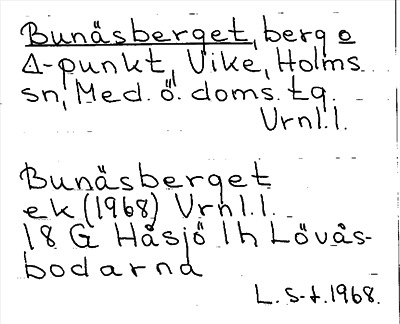 Bunäsberget, berg o
Δ-punkt, Vike, Holms
sn, Med. ö. doms. tg.
Vrnl.l.
Bunäsberget
ek (1968) Vrnl.l.
18 G Håsjö 1h Lövås-
bodarna
L. S-t. 1968.